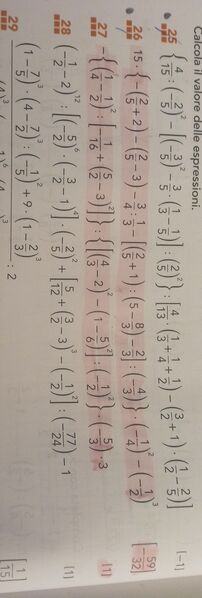 Calcola il valore delle espressioni.
25 {4/15 : (-2/5) - [(-3/5)² · 3/5 · (1/3 - 1/5)] : (2/5)²} : [4/13 · (1/3 + 1/4 + 1/2) - (3/2 + 1) · (1/2 - 2/5)] (-1)
26 15 · {-(2/5 + 2) - (2/5 - 3) - 3/4 : 3/3 - [(2/5 + 1) : (5 - 8/3) - 2/3] : (-4/3)} · (-1/4)² - (-1/2)³ [-59/32]
27 -{(1/4 - 1/2)² : [-1/16 + (5/3 - 3)²]} : {[(4/3 - 2)² - (1 - 5/6)²] : (-1/2)²} · (-5/3)³ · 3 (1)
28 (-1/2 - 2)¹² : [(-5/2)⁶ · (-3/2 - 1)⁴] · (2/5)² + [5/12 + (2/3 - 3)³ - (-1/2)²] : (-77/24) - 1 (1)
29 (1 - 7/5)³ · (4 - 7/2)³ : (-1/5)² + 9 · (1 - 2/3)³
: 2
[1/15]